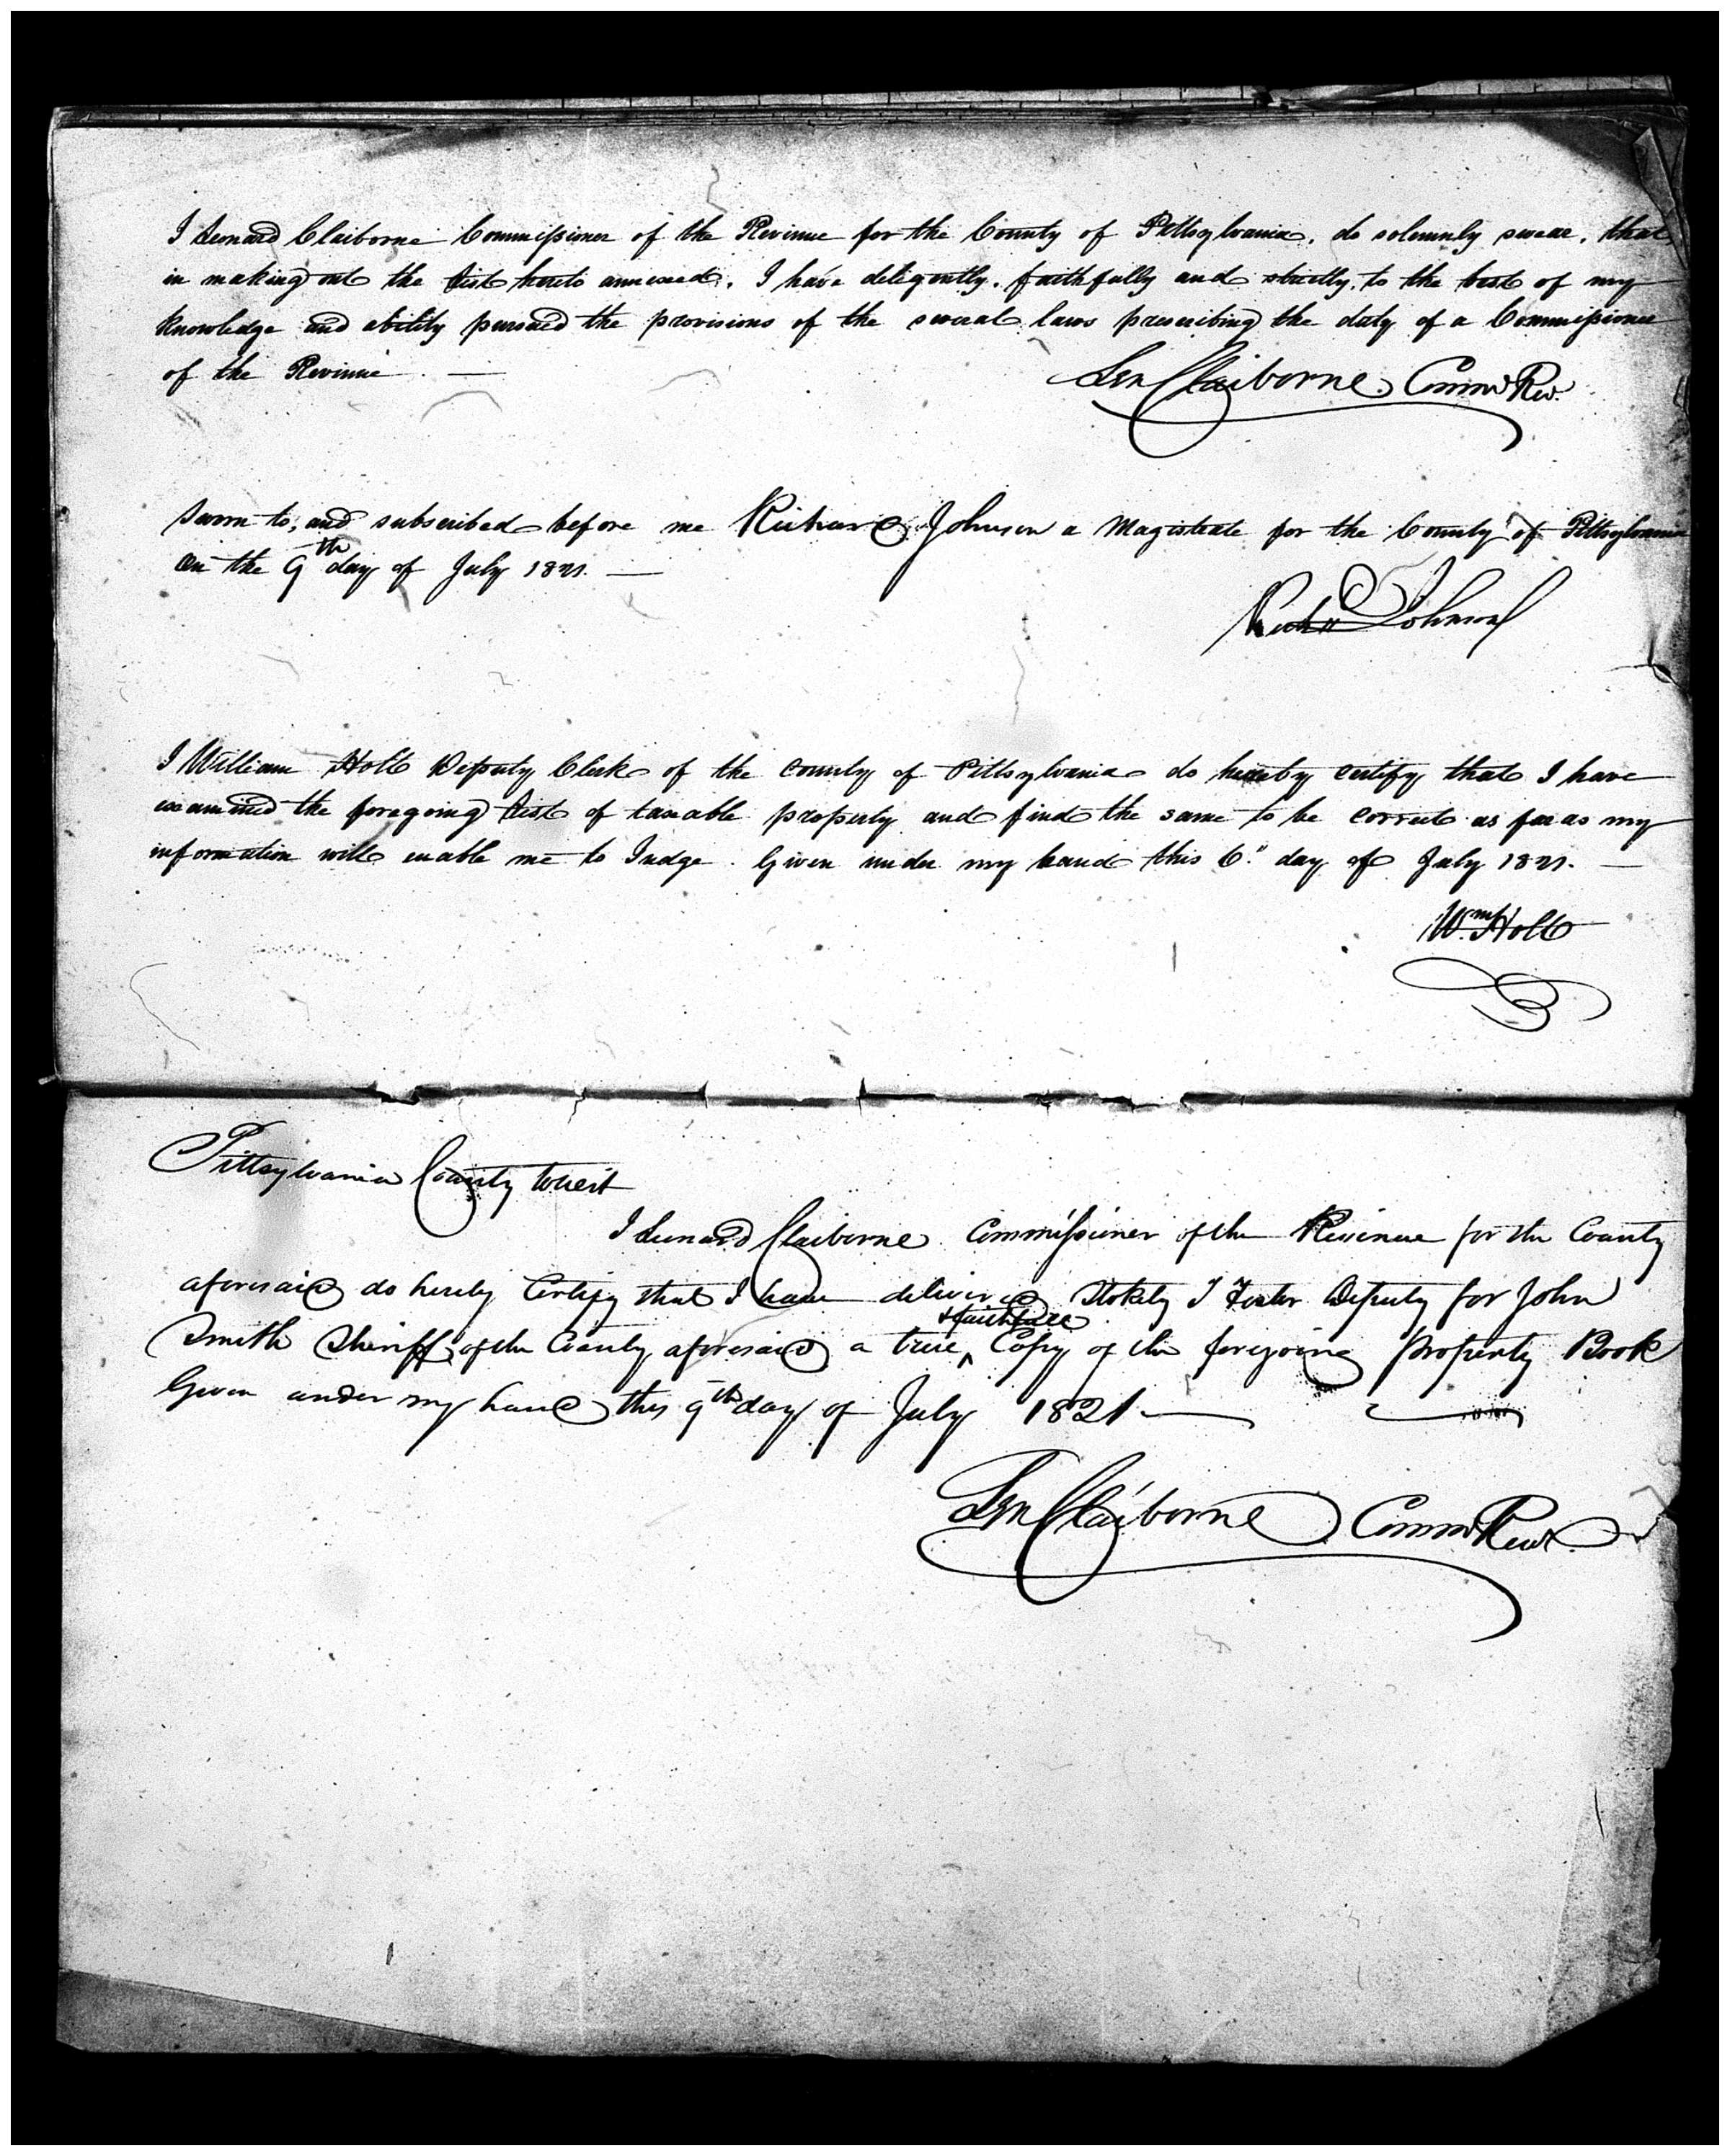 I Leonard Claiborne Commissioner of the Revinue for the County of Pittsylvania, do solemnly swear, that
in making out the list hereto annexed, I have deligently, faithfully and strictly, to the best of my
knowledge and ability pursued the provisions of the several laws prescribing the duty of a Commissioner
of the Revinue. —
Len Claiborne Commr Rev.
Sworn to, and subscribed before me Richard Johnson a Magistrate for the County of Pittsylvania
on the 9th day of July 1821. —
Richd Johnson
I William Holt Deputy Clerk of the County of Pittsylvania do hereby certify that I have
examined the foregoing list of taxable property and find the same to be correct as far as my
information will enable me to Judge. Given under my hand this 6." day of July 1821. —
Wm. Holt
Pittsylvania County towit
I Leonard Claiborne Commissioner of the Revinue for the County
aforesaid do hereby Certify that I have delivered Stokely T Foster Deputy for John
Smith Sheriff of the County aforesaid a true ^ & faithfull Copy of the foregoing Property Book
Given under my hand this 9th day of July 1821 —
Len Claiborne Commr Revr.